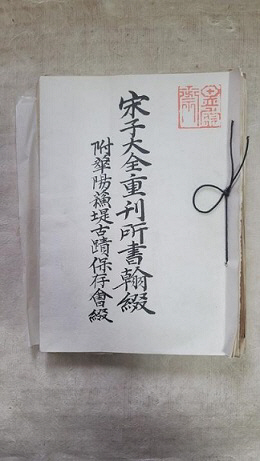 宋子大全重刊所書翰綴
附華陽蒼堤古蹟保存會綴